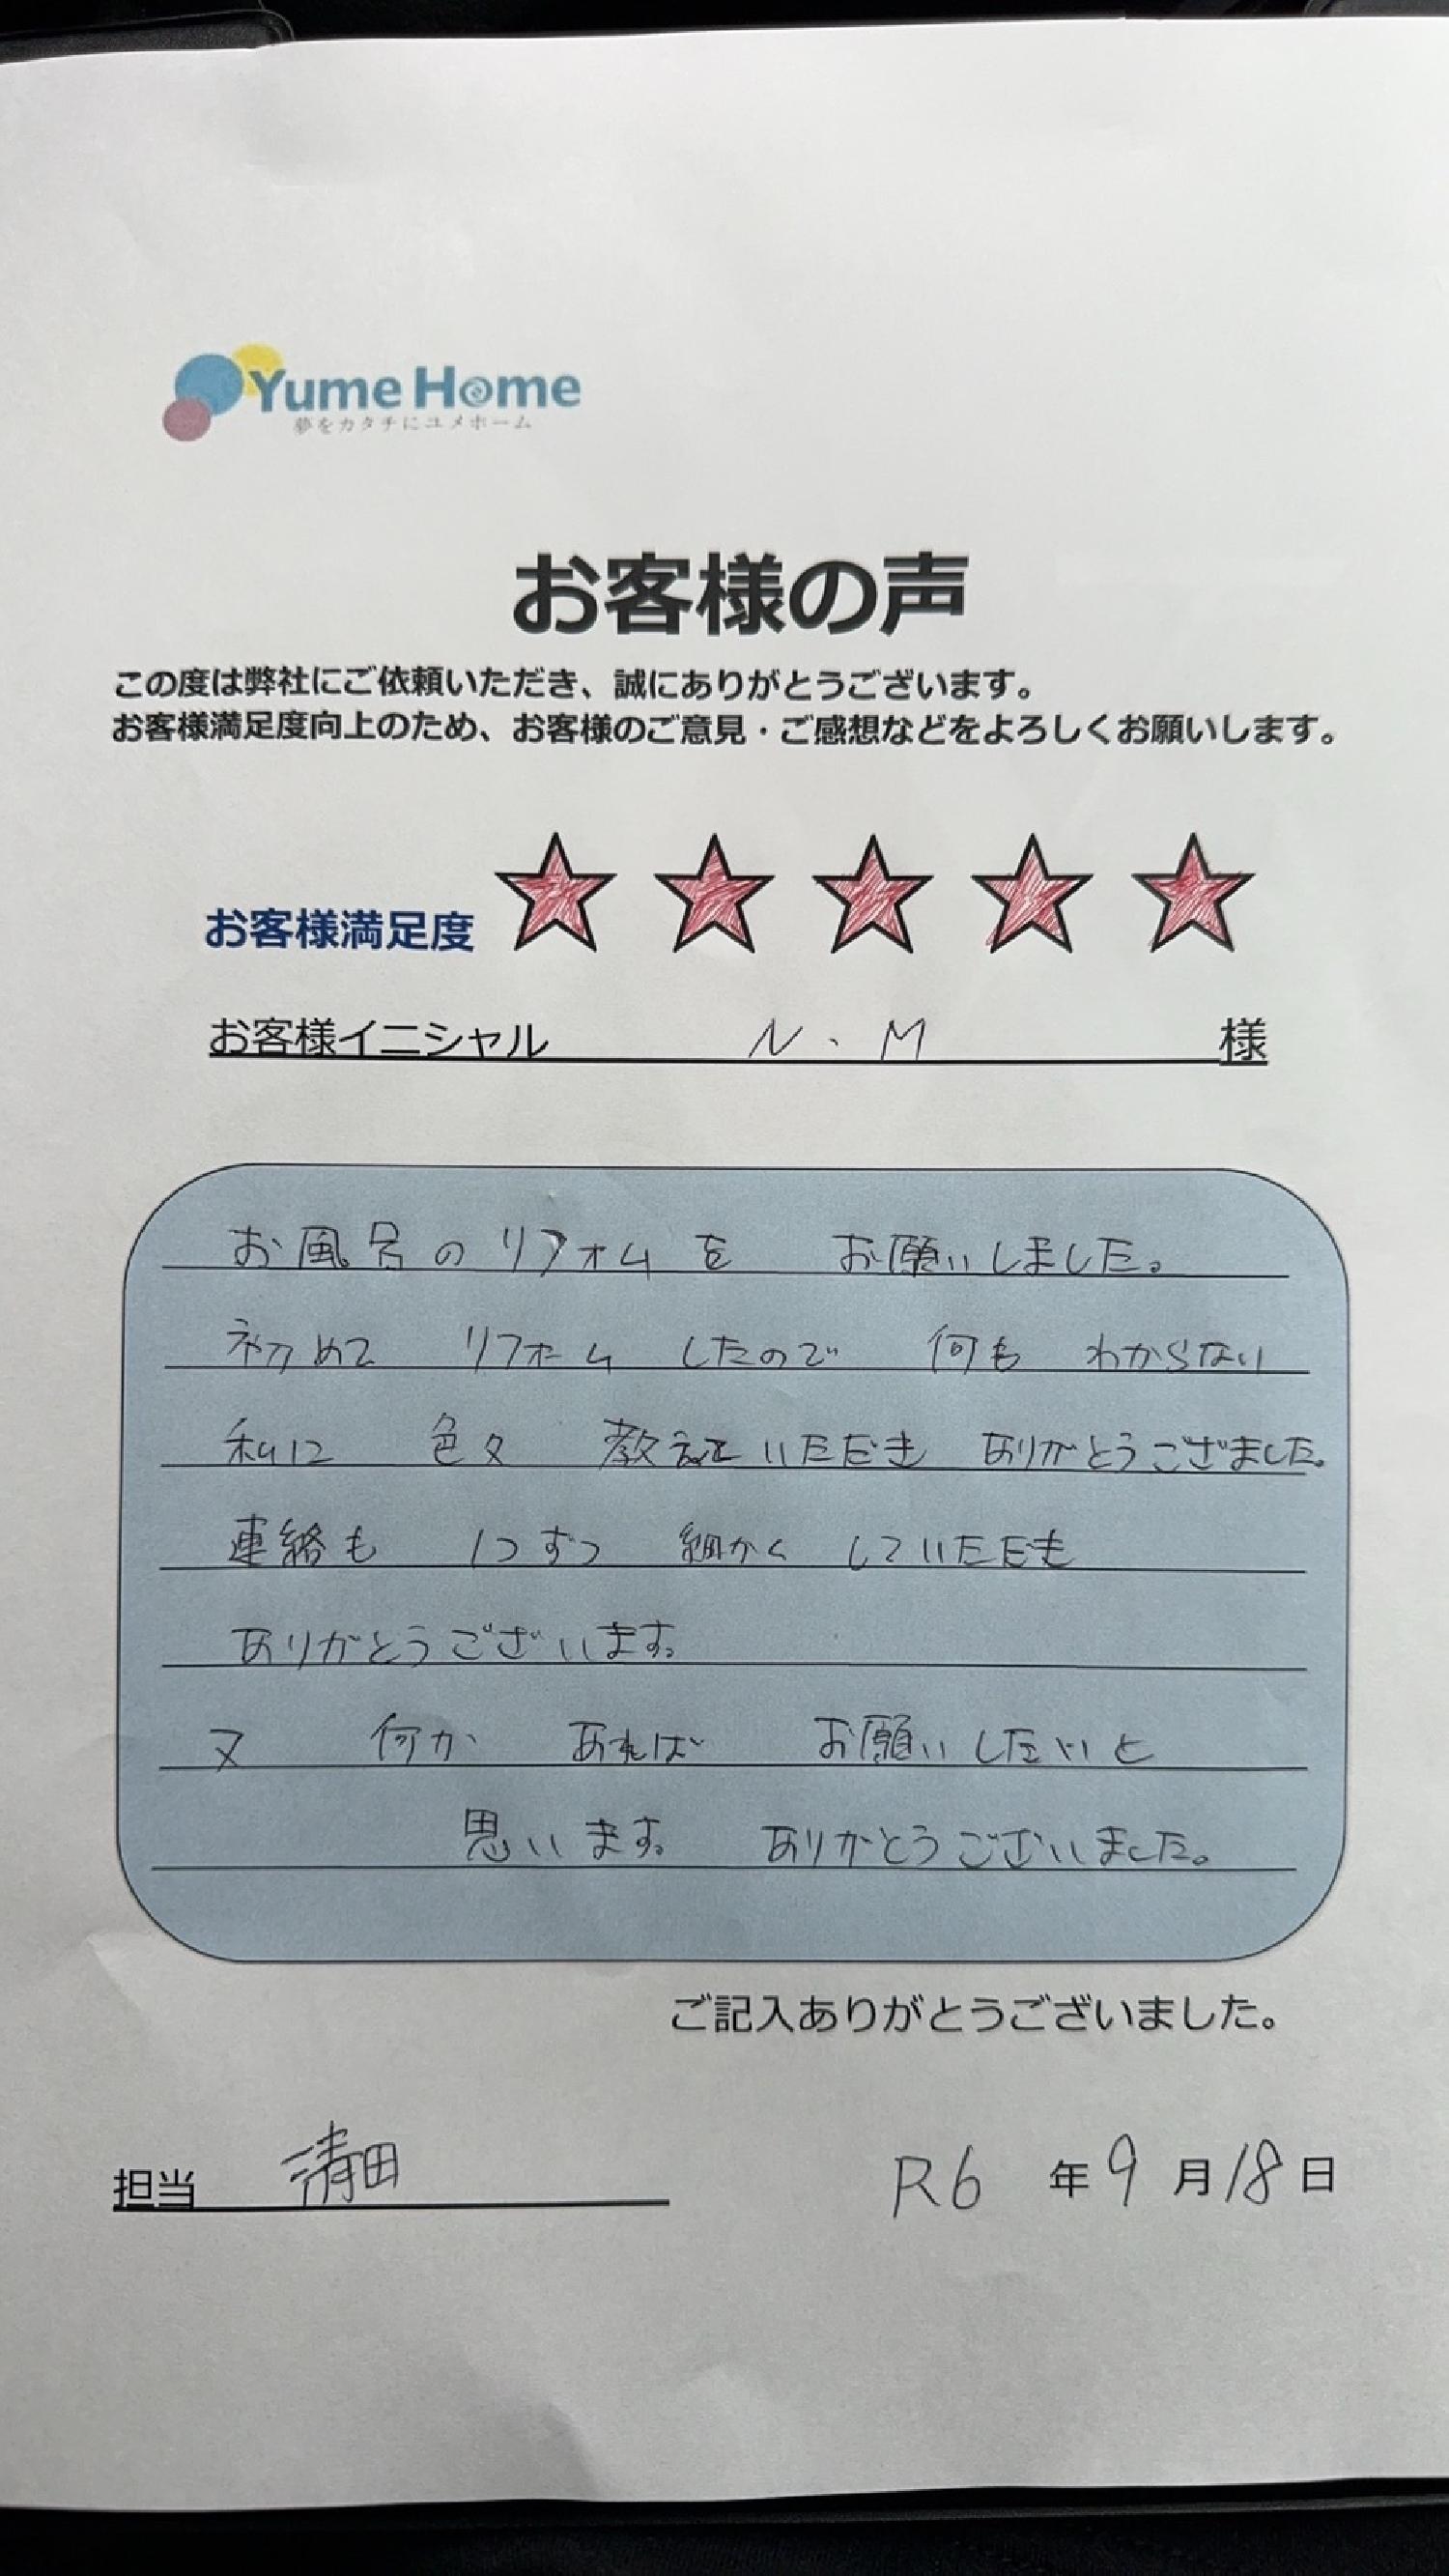 Yume Home
夢をカタチにユメホーム
お客様の声
この度は弊社にご依頼いただき、誠にありがとうございます。
お客様満足度向上のため、お客様のご意見・ご感想などをよろしくお願いします。
お客様満足度 ★ ★ ★ ★ ★
お客様イニシャル N.M 様
お風呂のリフォムを お願いしました。
初めて リフォーム したので 何も わからない
私に 色々 教えていただき ありがとうござました。
連絡も 1つずつ 細かく していただき
ありがとうございます。
又 何か あれば お願いしたいと
思います。 ありがとうございました。
ご記入ありがとうございました。
担当 清田
R6 年 9 月 18 日